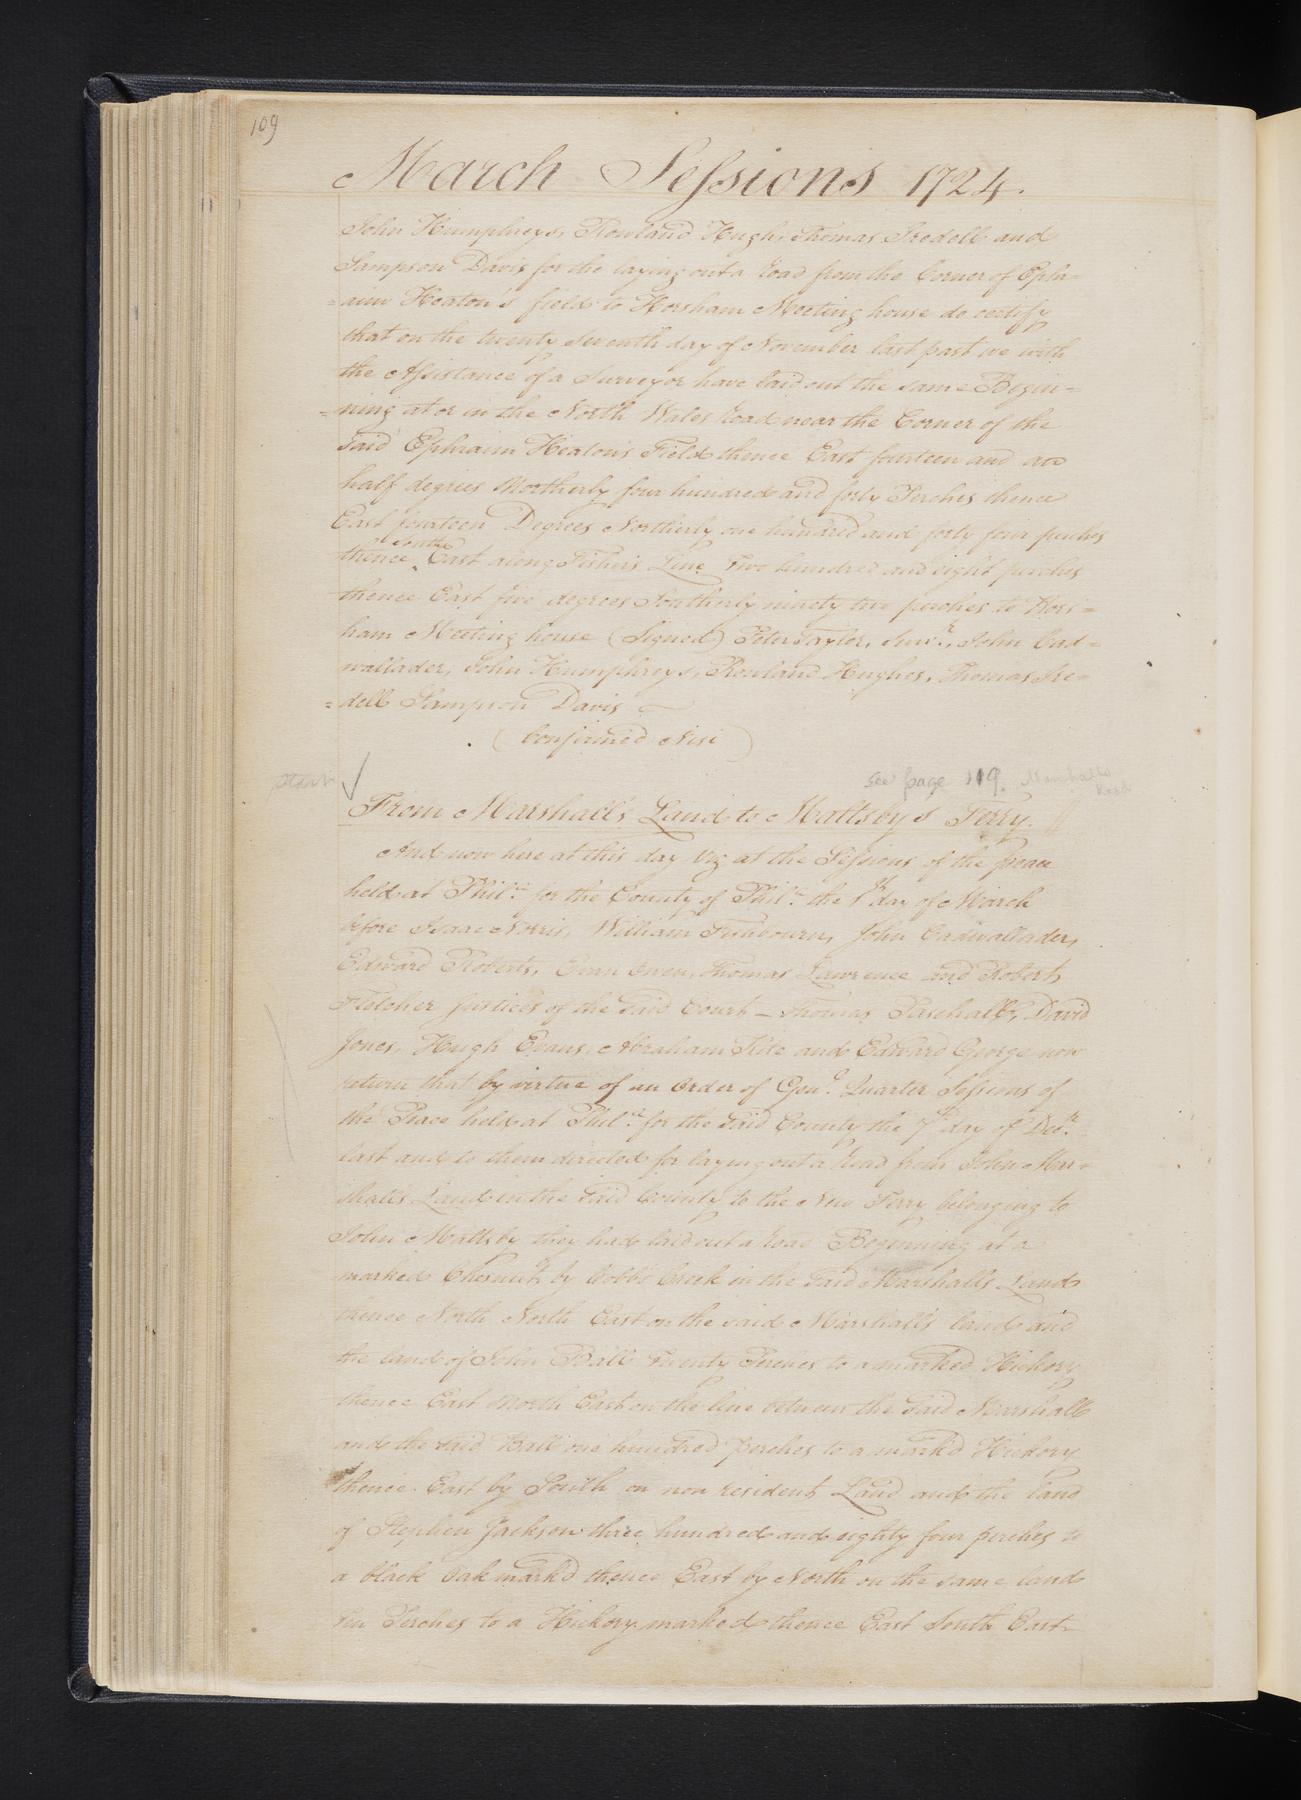 109
March Sessions 1724.
John Humphreys, Rowland Hugh, Thomas Iredell and
Sampson Davis for the laying out a road from the Corner of Eph=
=aim Heaton's field to Horsham Meeting house do certify
that on the twenty seventh day of November last past we with
the Assistance of a Surveyor have laid out the same Begin=
=ning at or in the North Wales road near the Corner of the
Said Ephraim Heaton's Field thence East fourteen and an
half degrees Northerly four hundred and forty Perches thence
East fourteen Degrees Northerly one hundred and forty four perches
thence South East along Fishers Line Two hundred and eight perches
thence East five degrees Southerly ninety two perches to Hors=
ham Meeting house (Signed) Peter Taylor, Survr., John Cad=
wallader, John Humphreys, Rowland Hughes, Thomas Ire=
=dell Sampson Davis
(Confirmed Nisi)
start
see page 119. Marshalls Road
From Marshall's Land to Maltsby's Ferry.
And now here at this day viz at the Sessions of the peace
held at Phila. for the County of Phila. the 1st day of March
before Isaac Norris, William Fishbourn, John Cadwallader,
Edward Roberts, Evan Owen, Thomas Lawrence and Robert
Fletcher Justices of the Said Court — Thomas Paschall, David
Jones, Hugh Evans, Abraham Kite and Edward George now
return that by virtue of an Order of Genl. Quarter Sessions of
the Peace held at Phila. for the Said County the 7th day of Decr.
last and to them directed for laying out a road from John Mar=
shalls Land in the Said County to the New Ferry belonging to
John Maltsby they had laid out a road Beginning at a
marked Chesnut by Cobbs Creek in the Said Marshalls Land
thence North North East on the said Marshalls land and
the land of John Ball Twenty Perches to a marked Hickory
thence East North East on the line between the Said Marshall
and the Said Ball one hundred perches to a mark'd Hickory
thence East by South on non resident Land and the land
of Stephen Jackson three hundred and eighty four perches to
a black Oak mark'd thence East by North on the same land
Perches to a Hickory marked thence East South East